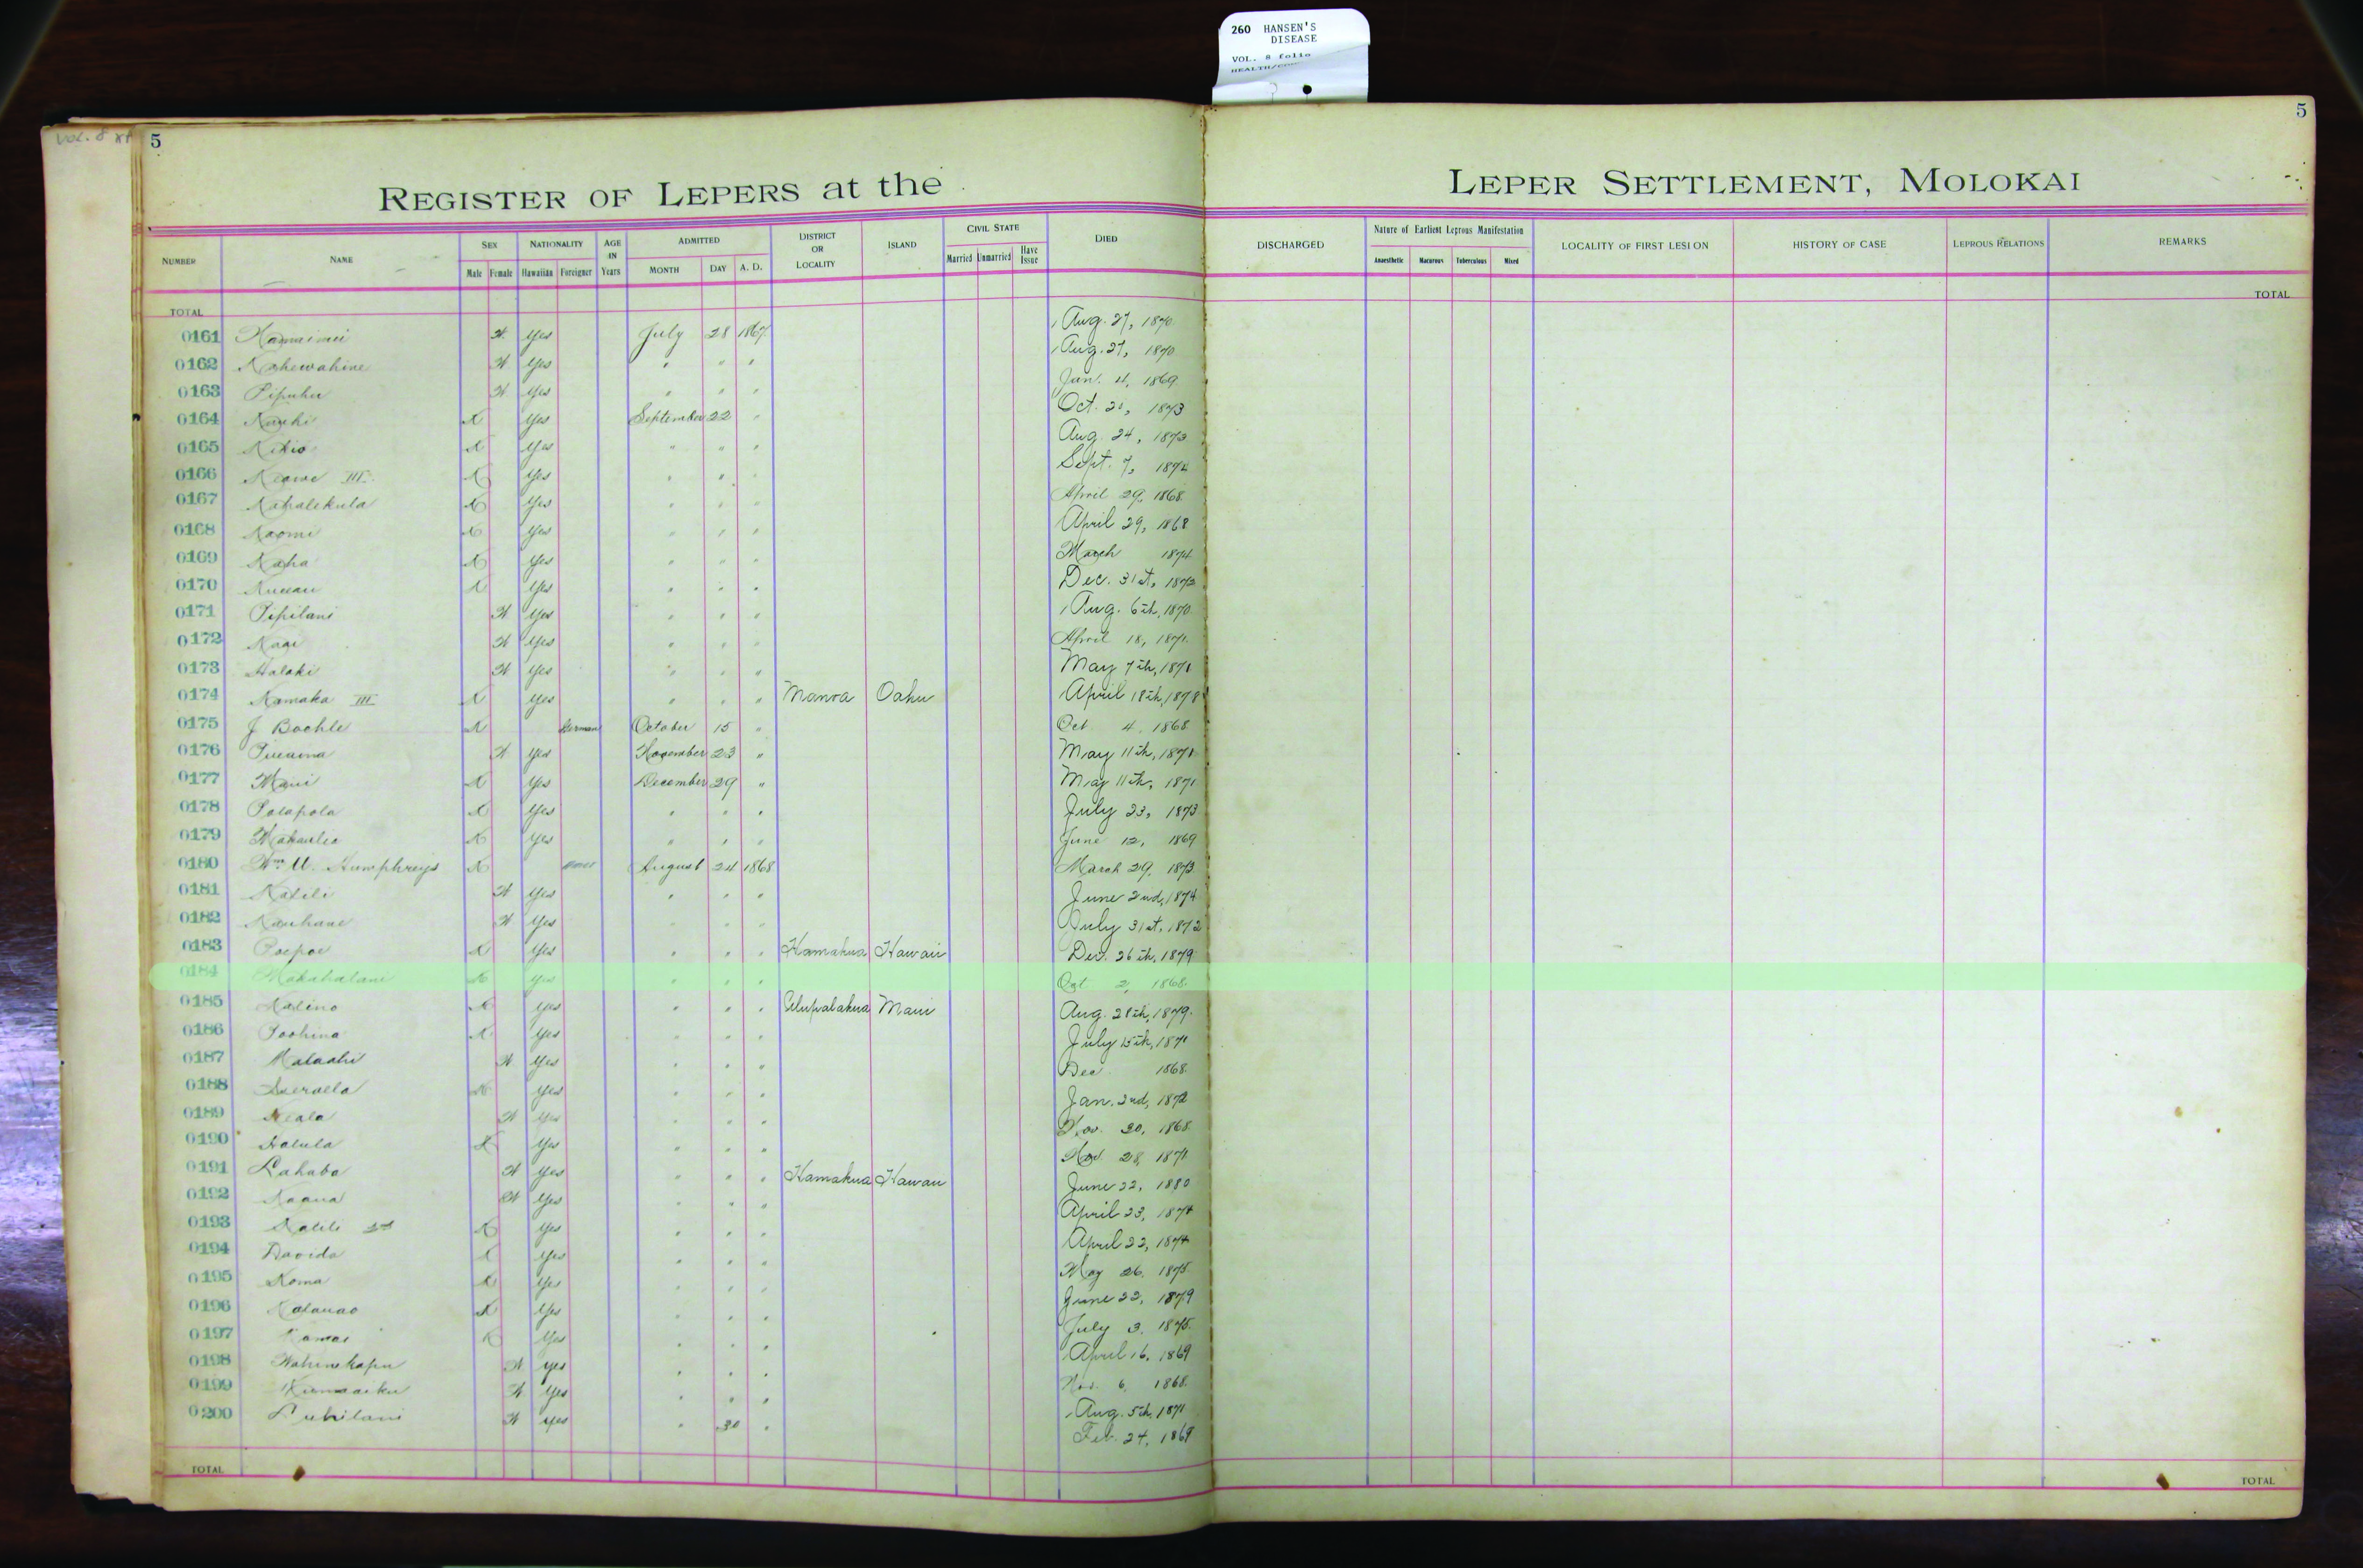 260 HANSEN'S
DISEASE
VOL. 8 folio
VOL. 8
5
5
REGISTER OF LEPERS at the LEPER SETTLEMENT, MOLOKAI
NUMBER NAME SEX Male Female NATIONALITY Hawaiian Foreigner AGE IN Years ADMITTED MONTH DAY A. D. DISTRICT OR LOCALITY ISLAND CIVIL STATE Married Unmarried Have Issue DIED DISCHARGED Nature of Earliest Leprous Manifestation Anaesthetic Macurous Tuberculous Mixed LOCALITY OF FIRST LESION HISTORY OF CASE LEPROUS RELATIONS REMARKS
TOTAL TOTAL
0161 F Yes July 28 1867 Aug. 27, 1870
0162 Kahewahine F Yes " " " Aug. 27, 1870
0163 Pipuhu F Yes " " " Jan. 4, 1869
0164 M Yes September 22 " Oct. 1873
0165 Kikio M Yes " " " Aug. 24, 1873
0166 Keawe III M Yes " " " Sept. 7, 1874
0167 Kahalekula M Yes " " " April 29, 1868
0168 Naomi M Yes " " " April 29, 1868
0169 Kaha M Yes " " " March 1874
0170 M Yes " " " Dec. 31st, 1873
0171 Pipilani F Yes " " " Aug. 6th, 1870
0172 F Yes " " " April 18, 1871
0173 Halaki F Yes " " " May 7th, 1871
0174 Kamaka III M Yes " " " Manoa Oahu April 18th, 1878
0175 J Boehle M German October 15 " Oct 4, 1868
0176 Pueama F Yes November 23 " May 11th, 1871
0177 Maui M Yes December 29 " May 11th, 1871
0178 Polapola M Yes " " " July 23, 1873
0179 M Yes " " " June 12, 1869
0180 Wm. Humphreys M August 24 1868 March 29, 1873
0181 F Yes " " " June 2nd, 1874
0182 Kauhane F Yes " " " July 31st, 1872
0183 Poepoe M Yes " " " Hamakua Hawaii Dec. 26th, 1879
0184 Makahalani M Yes " " " Oct 2, 1868
0185 Kalino M Yes " " " Ulupalakua Maui Aug. 28th, 1879
0186 Poohina M Yes " " " July 15th, 1871
0187 Malaahi F Yes " " " Dec 1868
0188 M Yes " " " Jan. 2nd, 1872
0189 Keala F Yes " " " Nov. 30, 1868
0190 Halula M Yes " " " Nov. 28, 1871
0191 Lahaba F Yes " " " Hamakua Hawaii June 22, 1880
0192 Kaaua F Yes " " " April 23, 1874
0193 M Yes " " " April 22, 1874
0194 Davida M Yes " " " May 26, 1875
0195 Koma M Yes " " " June 22, 1879
0196 Kalauao M Yes " " " July 3, 1875
0197 Kamai M Yes " " " April 16, 1869
0198 Wahinekapu F Yes " " " Nov. 6, 1868
0199 Kumaaiku F Yes " " " Aug. 5th, 1871
0200 Luhilani F Yes " 30 " Feb. 24, 1869
TOTAL TOTAL